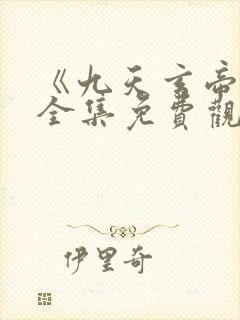 《九天玄帝
全集免費觀
伊里奇